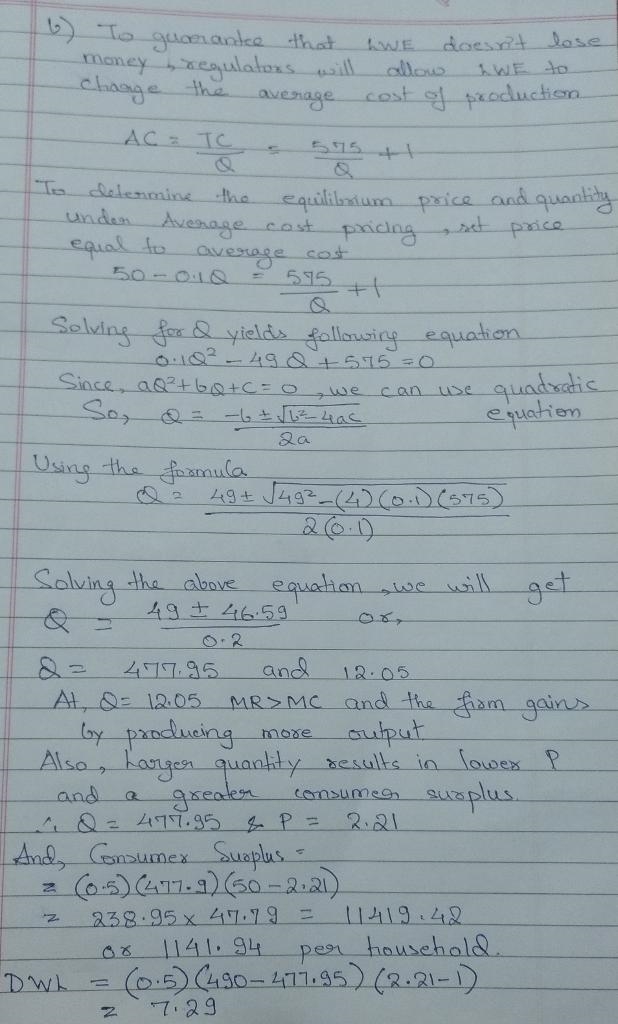 b) To guarantee that LWE doesn't lose
money, regulators will allow LWE to
charge the average cost of production
AC = TC/Q = 575/Q + 1
To determine the equilibrium price and quantity
under Average cost pricing, set price
equal to average cost
50 - 0.1Q = 575/Q + 1
Solving for Q yields following equation
0.1Q² - 49Q + 575 = 0
Since, aQ²+bQ+C = 0, we can use quadratic
So, Q = -b ± √b²-4ac / 2a equation
Using the formula
Q = 49 ± √49²-(4)(0.1)(575) / 2(0.1)
Solving the above equation, we will get
Q = 49 ± 46.59 / 0.2 or,
Q = 477.95 and 12.05
At, Q = 12.05 MR>MC and the firm gains
by producing more output
Also, harger quantity results in lower P
and a greater consumer surplus.
∴ Q = 477.95 & P = 2.21
And, Consumer Surplus =
= (0.5)(477.9)(50-2.21)
= 238.95 x 47.79 = 11419.42
or 1141.94 per household.
DWL = (0.5)(490-477.95)(2.21-1)
= 7.29